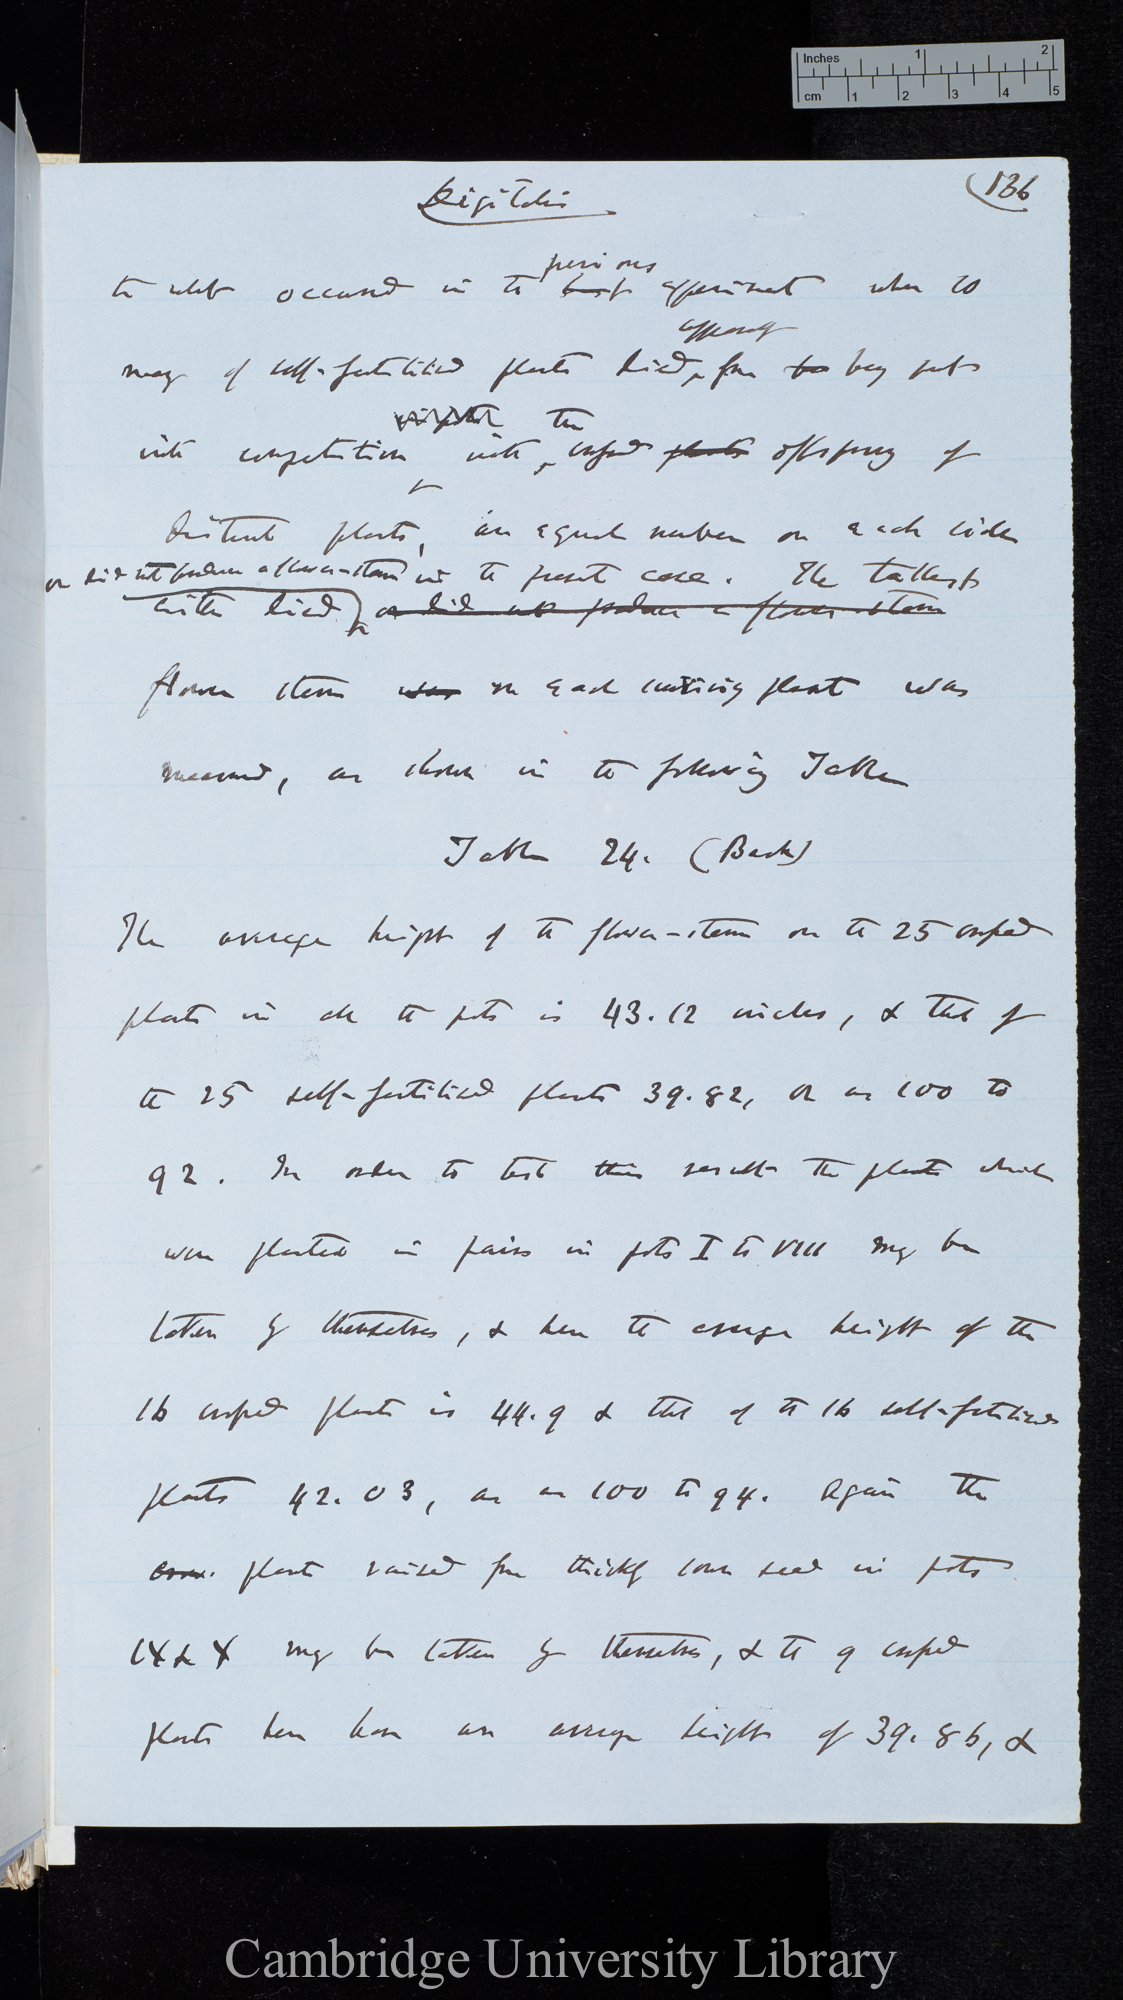 Inches 1 2
cm 1 2 3 4 5
Digitalis
(136
to what occurred in the previous experiment when so
many of self-fertilised plants died, apparently from being put
into competition with the crossed plants offspring of
distinct plants, an equal number on each side
or did not produce a flower-stem in the present case. The tallest
either died, or did not produce a flower-stem
flower stem was on each surviving plant was
measured, as shown in the following Table
Table 24. (Back)
The average height of the flower-stems on the 25 crossed
plants in all the pots is 43.12 inches, & that of
the 25 self-fertilised plants 39.82, or as 100 to
92. In order to test this result the plants which
were planted in pairs in pots I to VIII may be
taken by themselves, & here the average height of the
16 crossed plants is 44.9 & that of the 16 self-fertilised
plants 42.03, or as 100 to 94. Again the
plants raised from thickly sown seed in pots
IX & X may be taken by themselves, & the 9 crossed
plants here have an average height of 39.86, &
Cambridge University Library